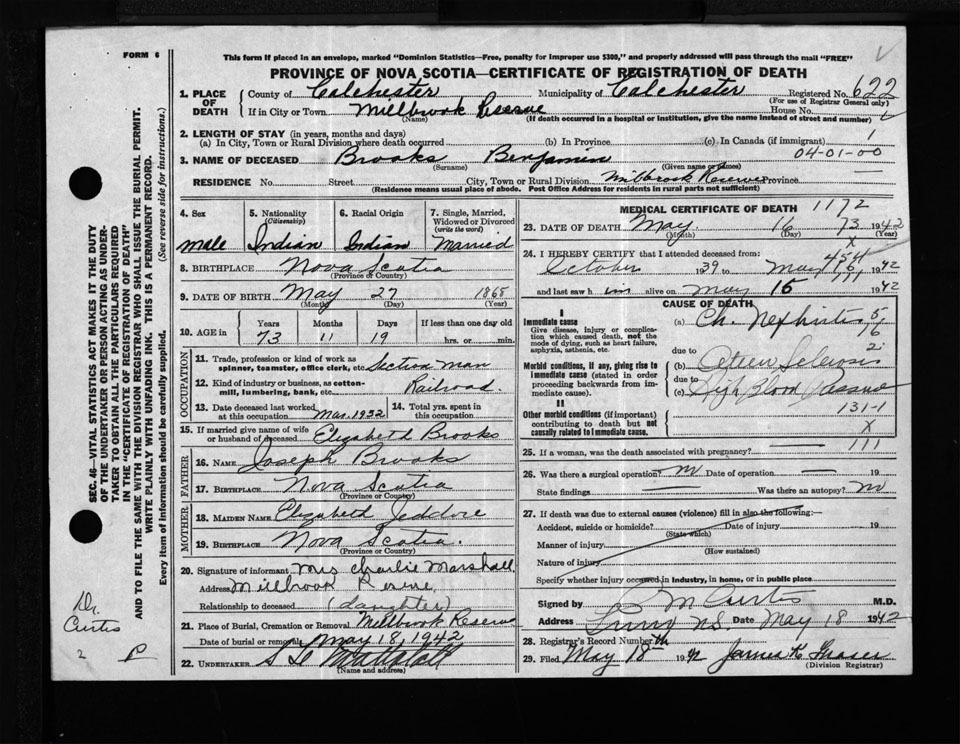 FORM 6
This form if placed in an envelope, marked "Dominion Statistics—Free, penalty for improper use $300," and properly addressed will pass through the mail "FREE"
PROVINCE OF NOVA SCOTIA—CERTIFICATE OF REGISTRATION OF DEATH
1. PLACE OF DEATH County of Colchester Municipality of Colchester Registered No. 622
(For use of Registrar General only)
If in City or Town Millbrook Reserve House No.
(Name) (If death occurred in a hospital or institution, give the name instead of street and number)
2. LENGTH OF STAY (in years, months and days) 1
(a) In City, Town or Rural Division where death occurred (b) In Province (c) In Canada (if immigrant)
04-01-00
3. NAME OF DECEASED Brooks Benjamin
(Surname) (Given name or names)
RESIDENCE No. Street City, Town or Rural Division Millbrook Reserve Province
(Residence means usual place of abode. Post Office Address for residents in rural parts not sufficient)
4. Sex 5. Nationality (Citizenship) 6. Racial Origin 7. Single, Married, Widowed or Divorced (write the word)
male Indian Indian Married
8. BIRTHPLACE Nova Scotia
(Province or Country)
9. DATE OF BIRTH May 27 1868
(Month) (Day) (Year)
10. AGE in Years Months Days If less than one day old
73 11 19 hrs. or min.
OCCUPATION
11. Trade, profession or kind of work as spinner, teamster, office clerk, etc. Section Man
12. Kind of industry or business, as cotton-mill, lumbering, bank, etc. Railroad.
13. Date deceased last worked at this occupation Mar. 1932 14. Total yrs. spent in this occupation
15. If married give name of wife or husband of deceased Elizabeth Brooks
FATHER
16. NAME Joseph Brooks
17. BIRTHPLACE Nova Scotia
(Province or Country)
MOTHER
18. MAIDEN NAME Elizabeth Jeddore
19. BIRTHPLACE Nova Scotia.
(Province or Country)
20. Signature of informant Mrs Charlie Marshall
Address Millbrook Reserve
Relationship to deceased (daughter)
21. Place of Burial, Cremation or Removal Millbrook Reserve
Date of burial or removal May 18, 1942
22. UNDERTAKER
(Name and address)
MEDICAL CERTIFICATE OF DEATH 1172
23. DATE OF DEATH May 16 73 1942
(Month) (Day) (Year)
x
454
24. I HEREBY CERTIFY that I attended deceased from:
October 1939 to May 16, 1942
and last saw him alive on May 15 1942
CAUSE OF DEATH
I
Immediate cause (a) Ch. Nephritis
Give disease, injury or complication which caused death, not the mode of dying, such as heart failure, asphyxia, asthenia, etc.
due to
Morbid conditions, if any, giving rise to immediate cause (stated in order proceeding backwards from immediate cause). (b)
due to
(c) High Blood Pressure
II
Other morbid conditions (if important) contributing to death but not causally related to immediate cause. 131-1
x
25. If a woman, was the death associated with pregnancy? 111
26. Was there a surgical operation? no Date of operation 19
State findings Was there an autopsy? no
27. If death was due to external causes (violence) fill in also the following:—
Accident, suicide or homicide? Date of injury 19
(State which)
Manner of injury
(How sustained)
Nature of injury
Specify whether injury occurred in industry, in home, or in public place
Signed by M Curtis M.D.
Address Truro N.S. Date May 18 1942
28. Registrar's Record Number
29. Filed May 18th 1942 James K. Fraser
(Division Registrar)
SEC. 46—VITAL STATISTICS ACT MAKES IT THE DUTY
OF THE UNDERTAKER OR PERSON ACTING AS UNDERTAKER
TO OBTAIN ALL THE PARTICULARS REQUIRED
IN THE "CERTIFICATE OF REGISTRATION OF DEATH"
AND TO FILE THE SAME WITH THE DIVISION REGISTRAR WHO SHALL ISSUE THE BURIAL PERMIT.
WRITE PLAINLY WITH UNFADING INK. THIS IS A PERMANENT RECORD.
Every item of information should be carefully supplied. (See reverse side for instructions.)
Dr.
Curtis
2 P